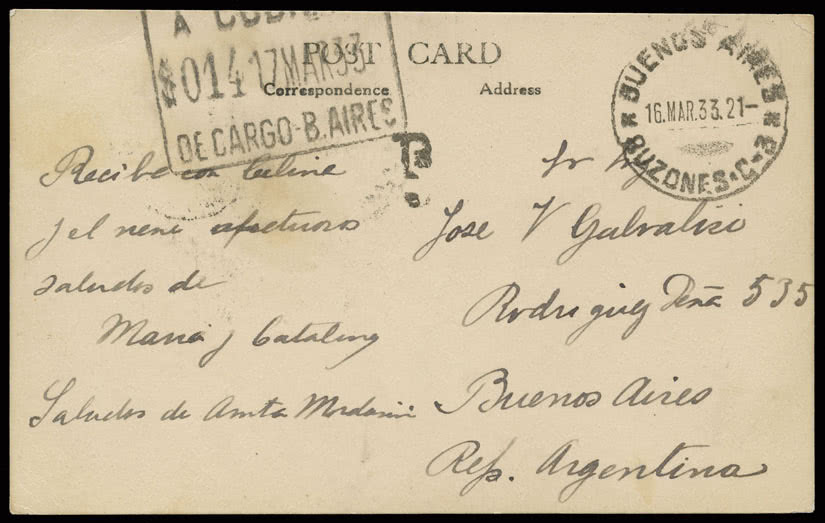 A COBRAR
$014 17 MAR 33
DE CARGO-B. AIRES
POST CARD
Correspondence
Address
BUENOS AIRES
16. MAR. 33. 21-
BUZONES-C-3
Recibe con Celina
y el nene afectuosos
saludos de
Maria y Catalina
Saludos de Anita
Sr
Jose V Galvalisi
Rodriguez Peña 535
Buenos Aires
Rep. Argentina